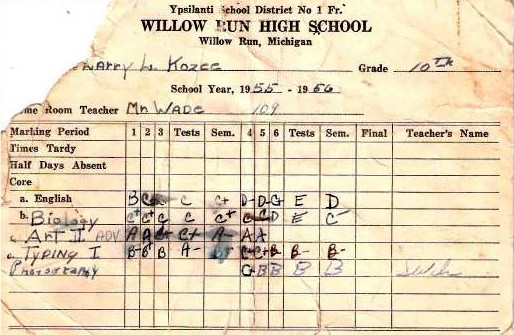 Ypsilanti School District No 1 Fr.
WILLOW RUN HIGH SCHOOL
Willow Run, Michigan
Larry L. Kozee Grade 10th
School Year, 1955 - 1956
me Room Teacher Mr. WADE 109
Marking Period 1 2 3 Tests Sem. 4 5 6 Tests Sem. Final Teacher's Name
Times Tardy
Half Days Absent
Core
a. English B C C C+ D- D- G E D
b. Biology C+ C+ C C C+ C D E C-
c. Art II ADV A A C+ A- A A
TYPING I B- B+ B A- C- C+ B B- B-
Photography G B B B B